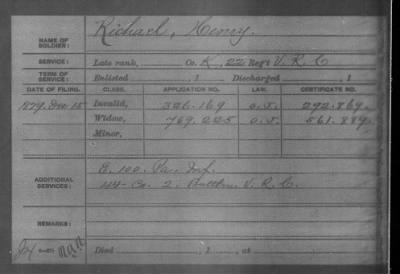 NAME OF SOLDIER: Richael, Henry.
SERVICE: Late rank, Co. K, 22 Reg't V. R. C
TERM OF SERVICE: Enlisted , 1 Discharged , 1
DATE OF FILING. CLASS. APPLICATION NO. LAW. CERTIFICATE NO.
1879, Dec 15 Invalid, 326.169 292.869.
Widow, 769.225 561.889.
Minor,
ADDITIONAL SERVICES: E. 100. Pa. Inf.
44- Co. 2. Batt'n. V. R. C.
REMARKS:
Died , 1 , at